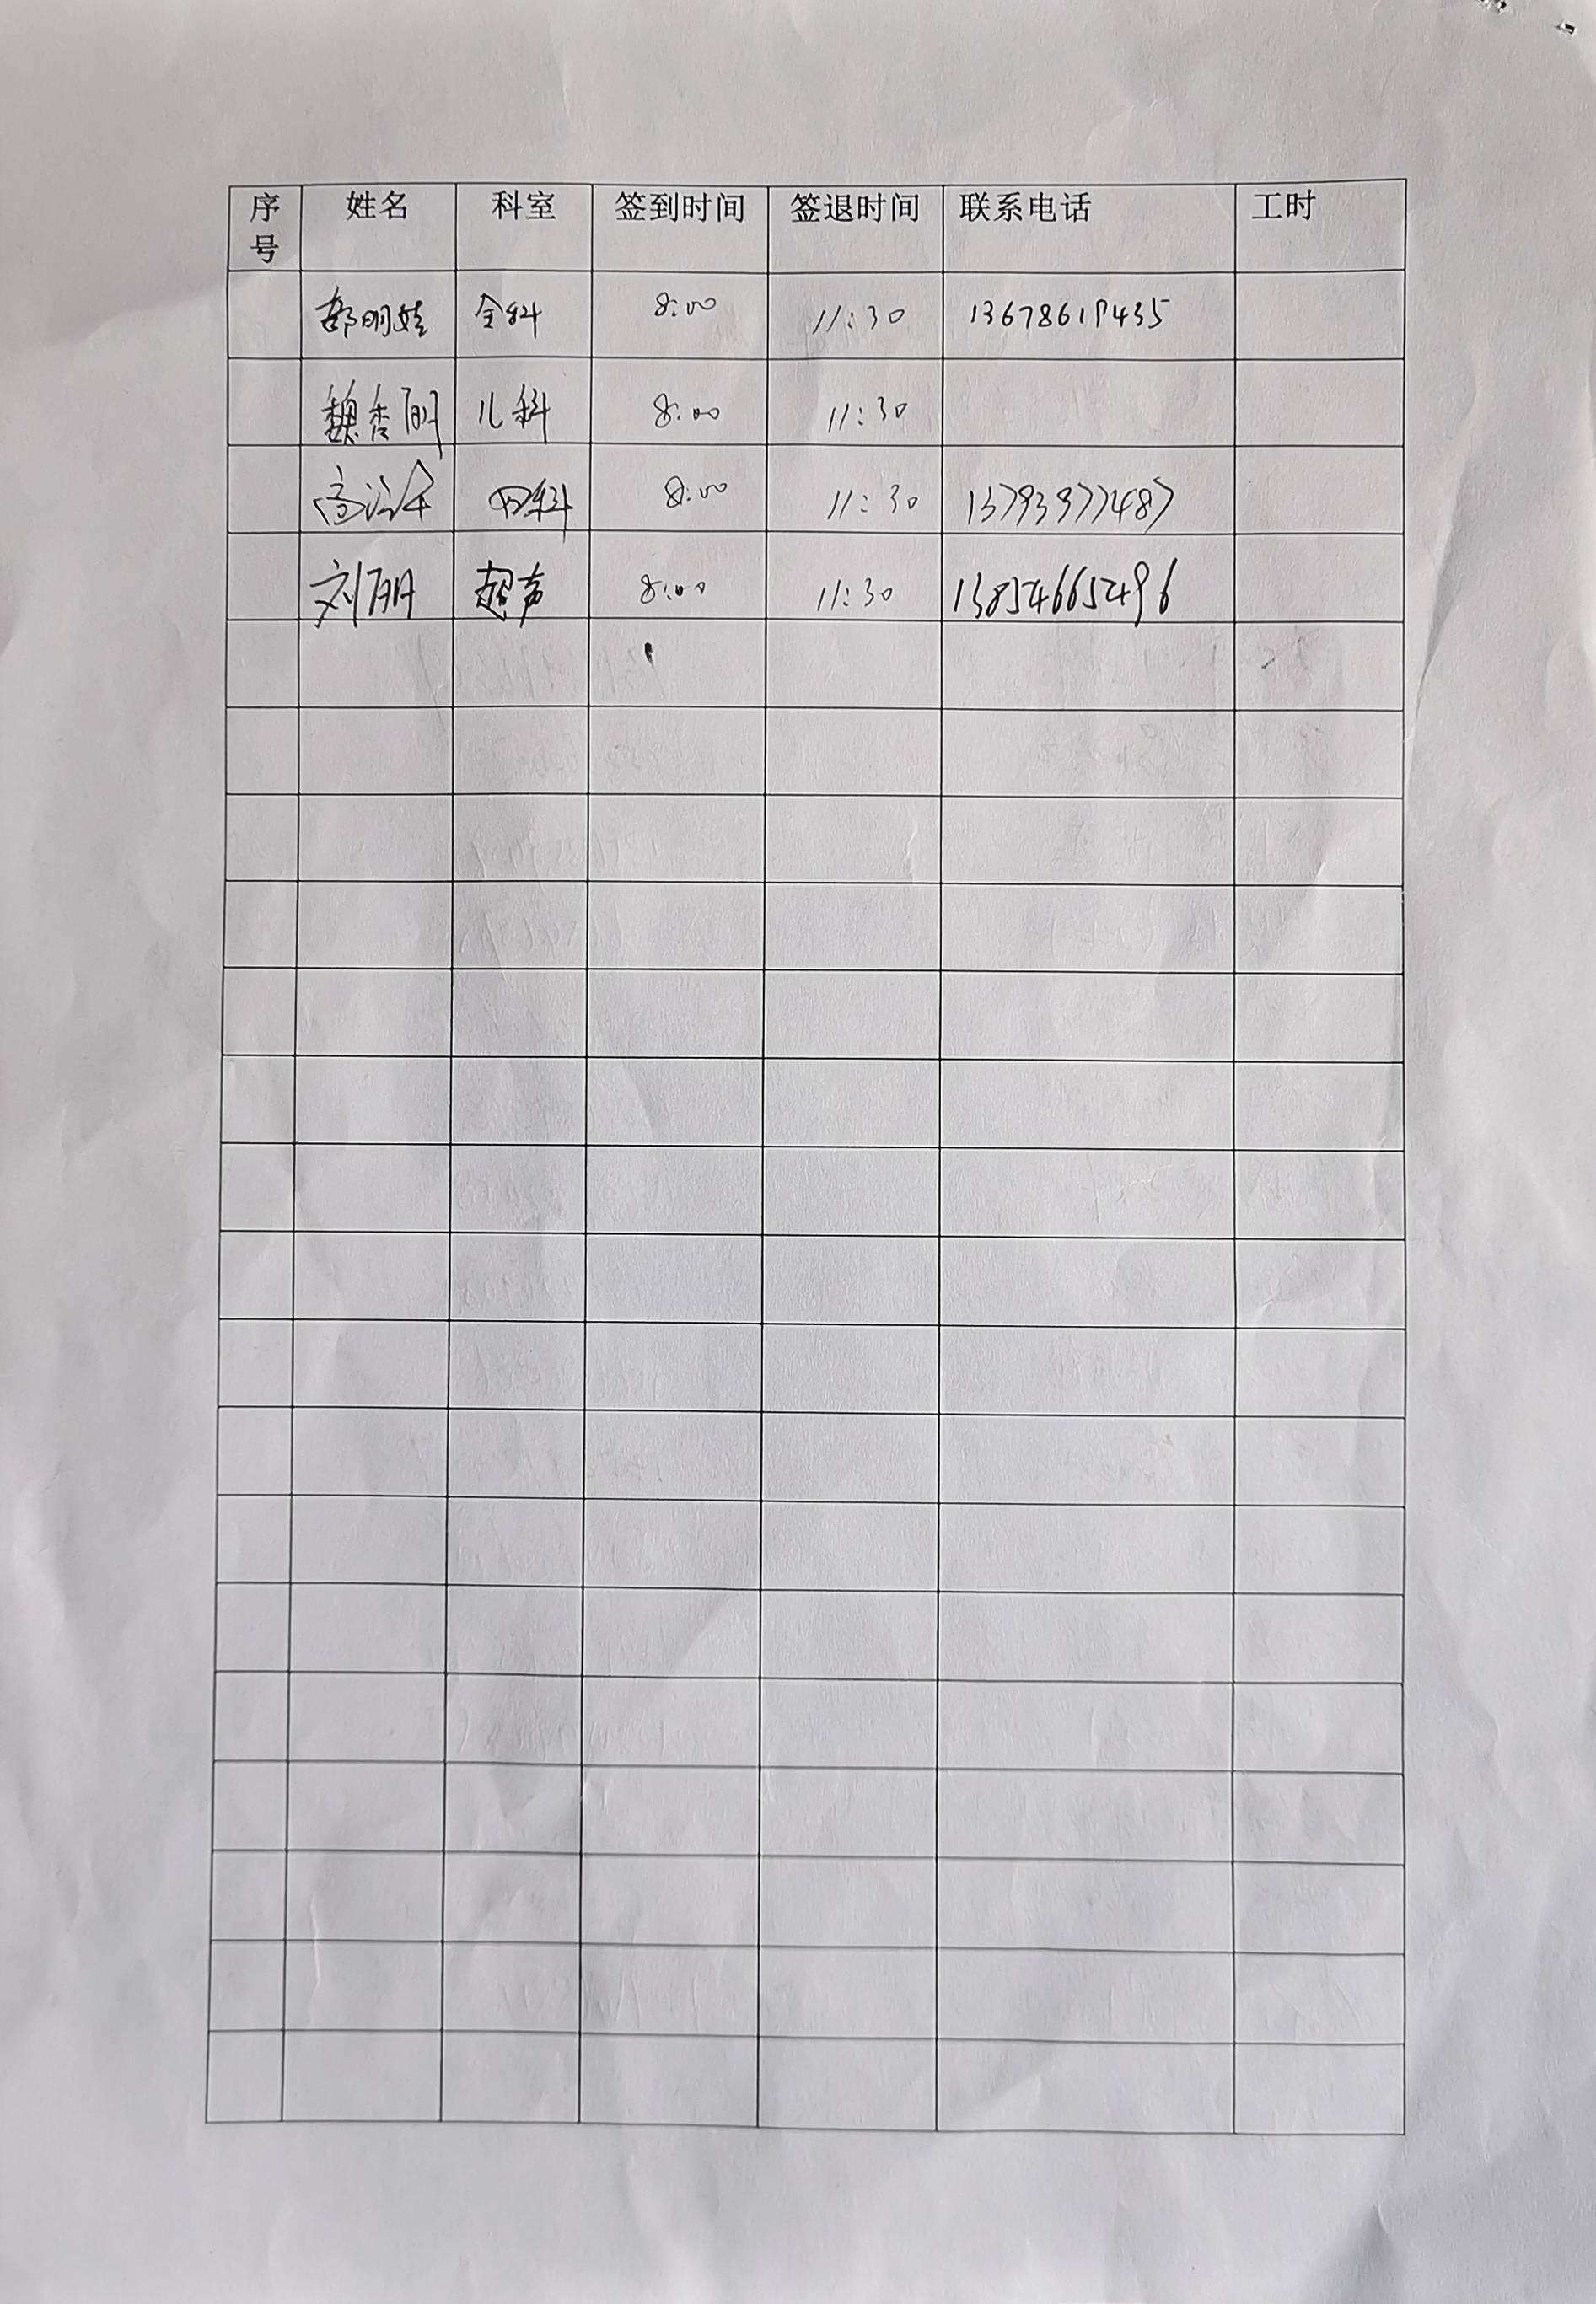 序号 姓名 科室 签到时间 签退时间 联系电话 工时
全科 8:00 11:30 13678619435
魏香丽 儿科 8:00 11:30
8:00 11:30 13793977487
刘丽 超声 8:00 11:30 13854665496